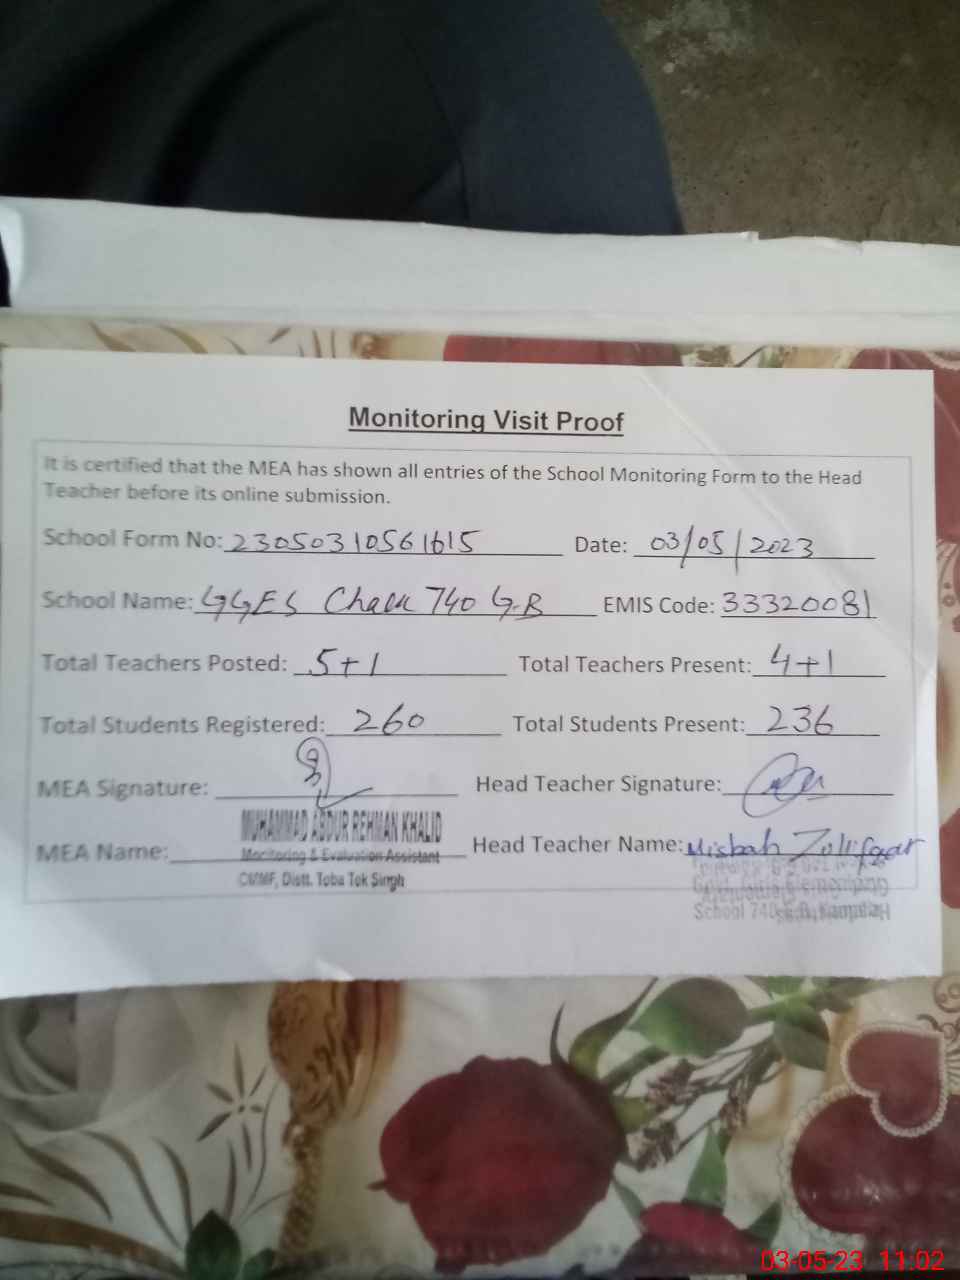 Monitoring Visit Proof
It is certified that the MEA has shown all entries of the School Monitoring Form to the Head
Teacher before its online submission.
School Form No: 23050310561615 Date: 03/05/2023
School Name: GGES Chack 740 G.B EMIS Code: 33320081
Total Teachers Posted: 5+1 Total Teachers Present: 4+1
Total Students Registered: 260 Total Students Present: 236
MEA Signature: Head Teacher Signature:
MEA Name: MUHAMMAD ABDUR REHMAN KHALID Head Teacher Name: Misbah Zulifqar
Monitoring & Evaluation Assistant
CMMF, Distt. Toba Tek Singh
Govt. Girls Elementary
School 740
03-05-23 11:02